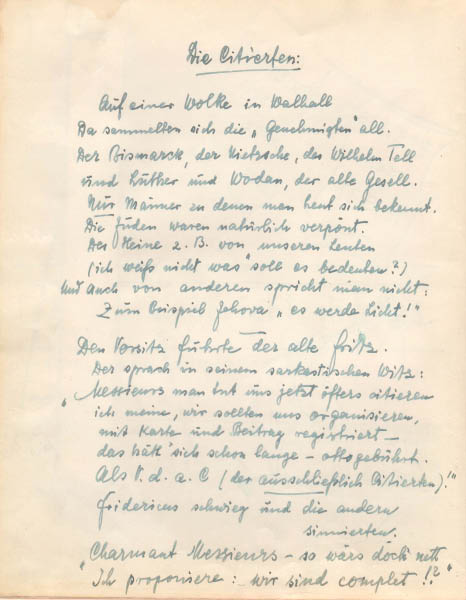 Die Citierten:
Auf einer Wolke in Walhall
Da sammelten sich die „Genehmigten" all.
Der Bismarck, der Nietzsche, der Wilhelm Tell
und Luther und Wodan, der alte Gesell.
Nur Männer zu denen man heut sich bekennt.
Die Juden waren natürlich verpönt.
Der Heine z. B. von unseren Leuten
(ich weiß nicht was" soll es bedeuten?)
Und auch von anderen spricht man nicht:
Zum Beispiel Jehova „es werde Licht!"
Den Vorsitz führte der alte Fritz.
Der sprach in seinem sarkastischen Witz:
„Messieurs man tut uns jetzt öfters citieren
ich meine, wir sollten uns organisieren,
mit Karte und Beitrag registriert –
das hätt' sich schon lange – ottogebührt.
Als V. d. a. C (der ausschließlich Citierten)!"
Fridericus schwieg und die andern
sinnierten.
„Charmant Messieurs – so wärs doch nett
Ich proponiere: wir sind complet!?"